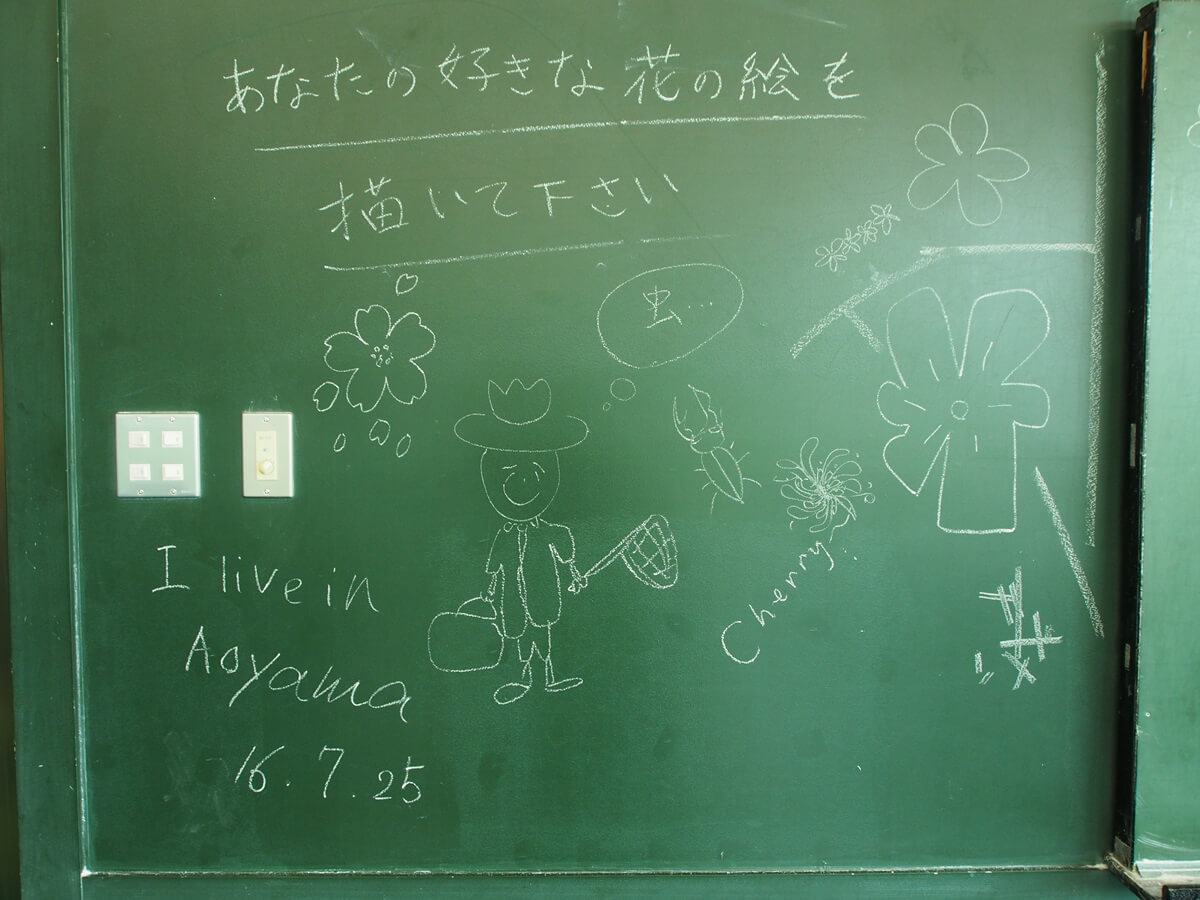 あなたの好きな花の絵を
描いて下さい
虫…
Cherry.
I live in
Aoyama
16.7.25